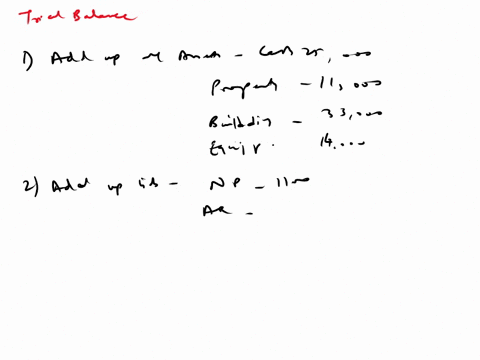 Trial Balance
1) Add up all Assets - Cash 25,000
Property - 11,000
Building - 33,000
Equip. 14,000
2) Add up lib - NP - 1100
AR -